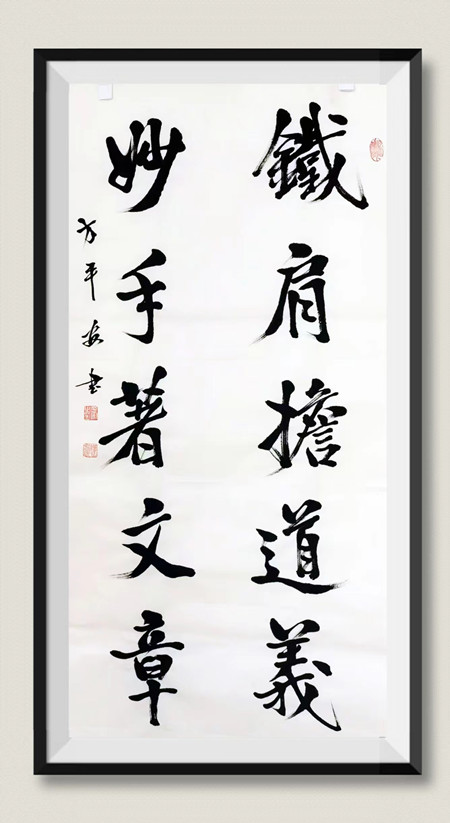 鐵肩擔道義
妙手著文章
方平安書